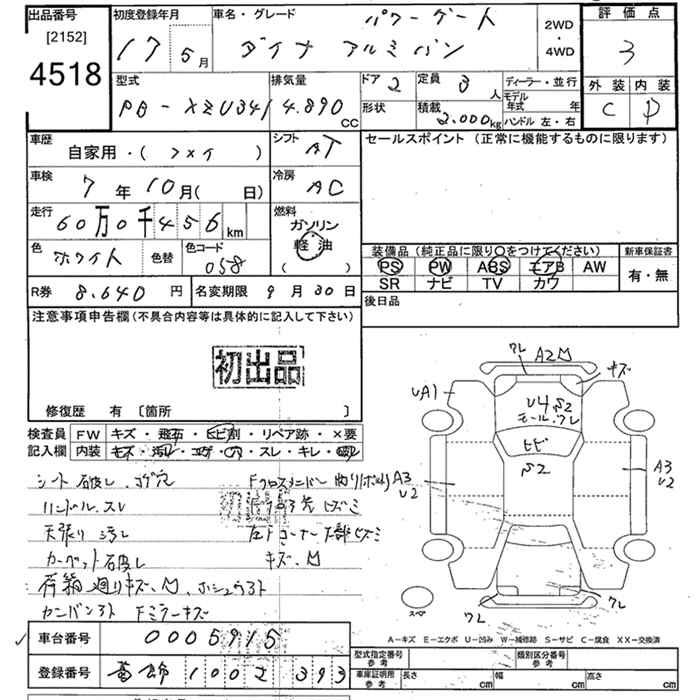 出品番号
[2152]
4518
初度登録年月
17 5月
車名・グレード
パワーゲート
ダイナ アルミバン
2WD
・
4WD
評価点
3
外装 内装
C D
型式
PB-XZU341
排気量
4.890cc
ドア 2
形状
定員 3人
積載 2.000kg
ディーラー・並行
モデル年式 年
ハンドル 左・右
車歴
自家用・( )
シフト
AT
セールスポイント (正常に機能するものに限ります)
車検
7年10月( 日)
冷房
AC
走行
60万0千456km
燃料
ガソリン
軽油
( )
色
ホワイト
色替
色コード
058
装備品 (純正品に限り○をつけてください)
新車保証書
PS PW ABS エアB AW
SR ナビ TV カワ
有・無
R券 8.640円
名変期限 9月30日
後日品
注意事項申告欄(不具合内容等は具体的に記入して下さい)
初出品
修復歴 有 [箇所 ]
検査員記入欄
FW キズ・飛石・ヒビ割・リペア跡・×要
内装 キズ・汚れ・コゲ・穴・スレ・キレ・
シート破レ、コゲ穴
ハンドル、スレ
天張り汚レ
カーペット破レ
荷箱廻りキズ、凹、
カンバンアト Fミラーキズ
Fクロスメンバー
左トコーナー下部ヒズミ
キズ、凹
ワレ
A2凹
キズ
UA1
U4 S2
モール、ワレ
ヒビ
S2
A3
U2
A3
U2
ワレ
ワレ
スペア
A-キズ E-エクボ U-凹み W-補修跡 S-サビ C-腐食 XX-交換済
車台番号 0005915
登録番号 葛飾 100 393
型式指定番号 参考
類別区分番号 参考
車庫証明用 参考
長さ cm
幅 cm
高さ cm